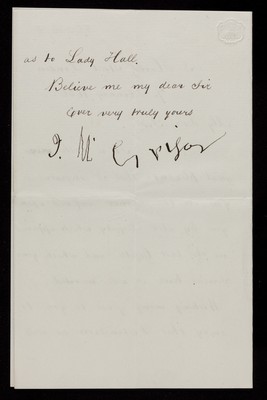 as to Lady Hall.
Believe me my dear Sir
ever very truly yours
J. Mc